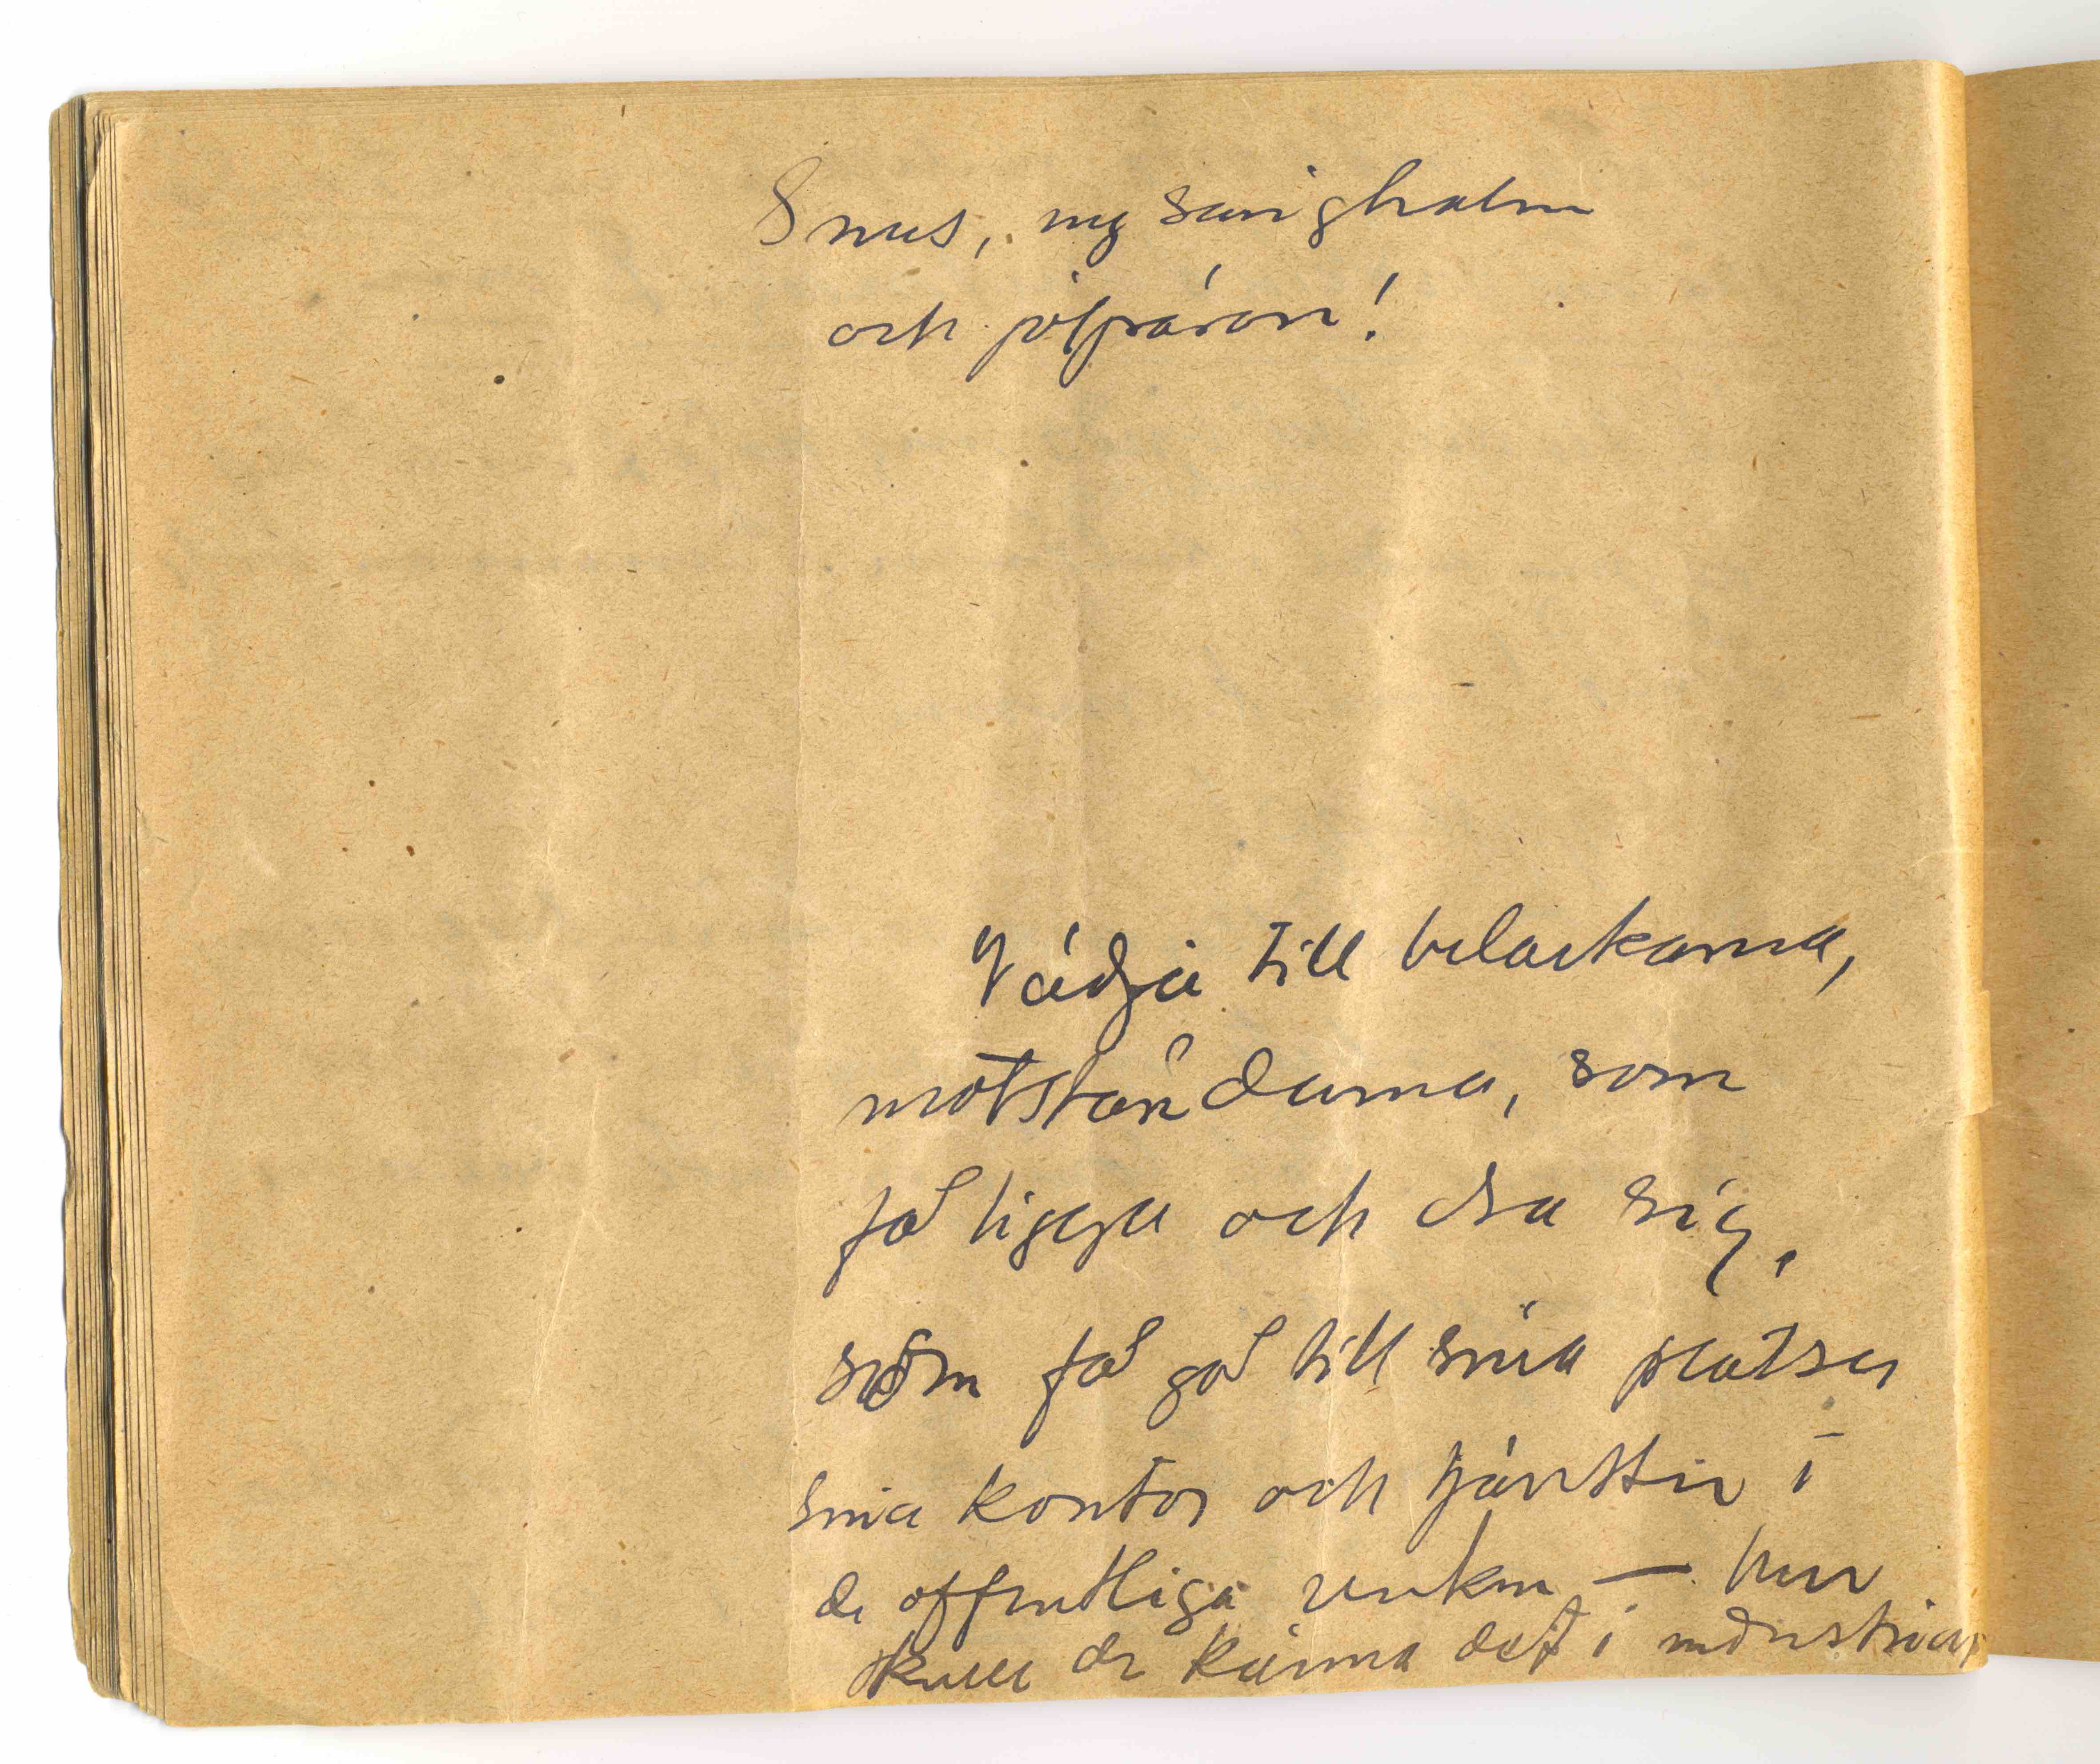 Snus, ny sänghalm
och pöspäron!
Vädja till belackarna,
motståndarna, som
få ligga och dra sig,
som få gå till sina platser
sina kontor och tjänster i
de offentliga verken — hur
skulle de känna det i